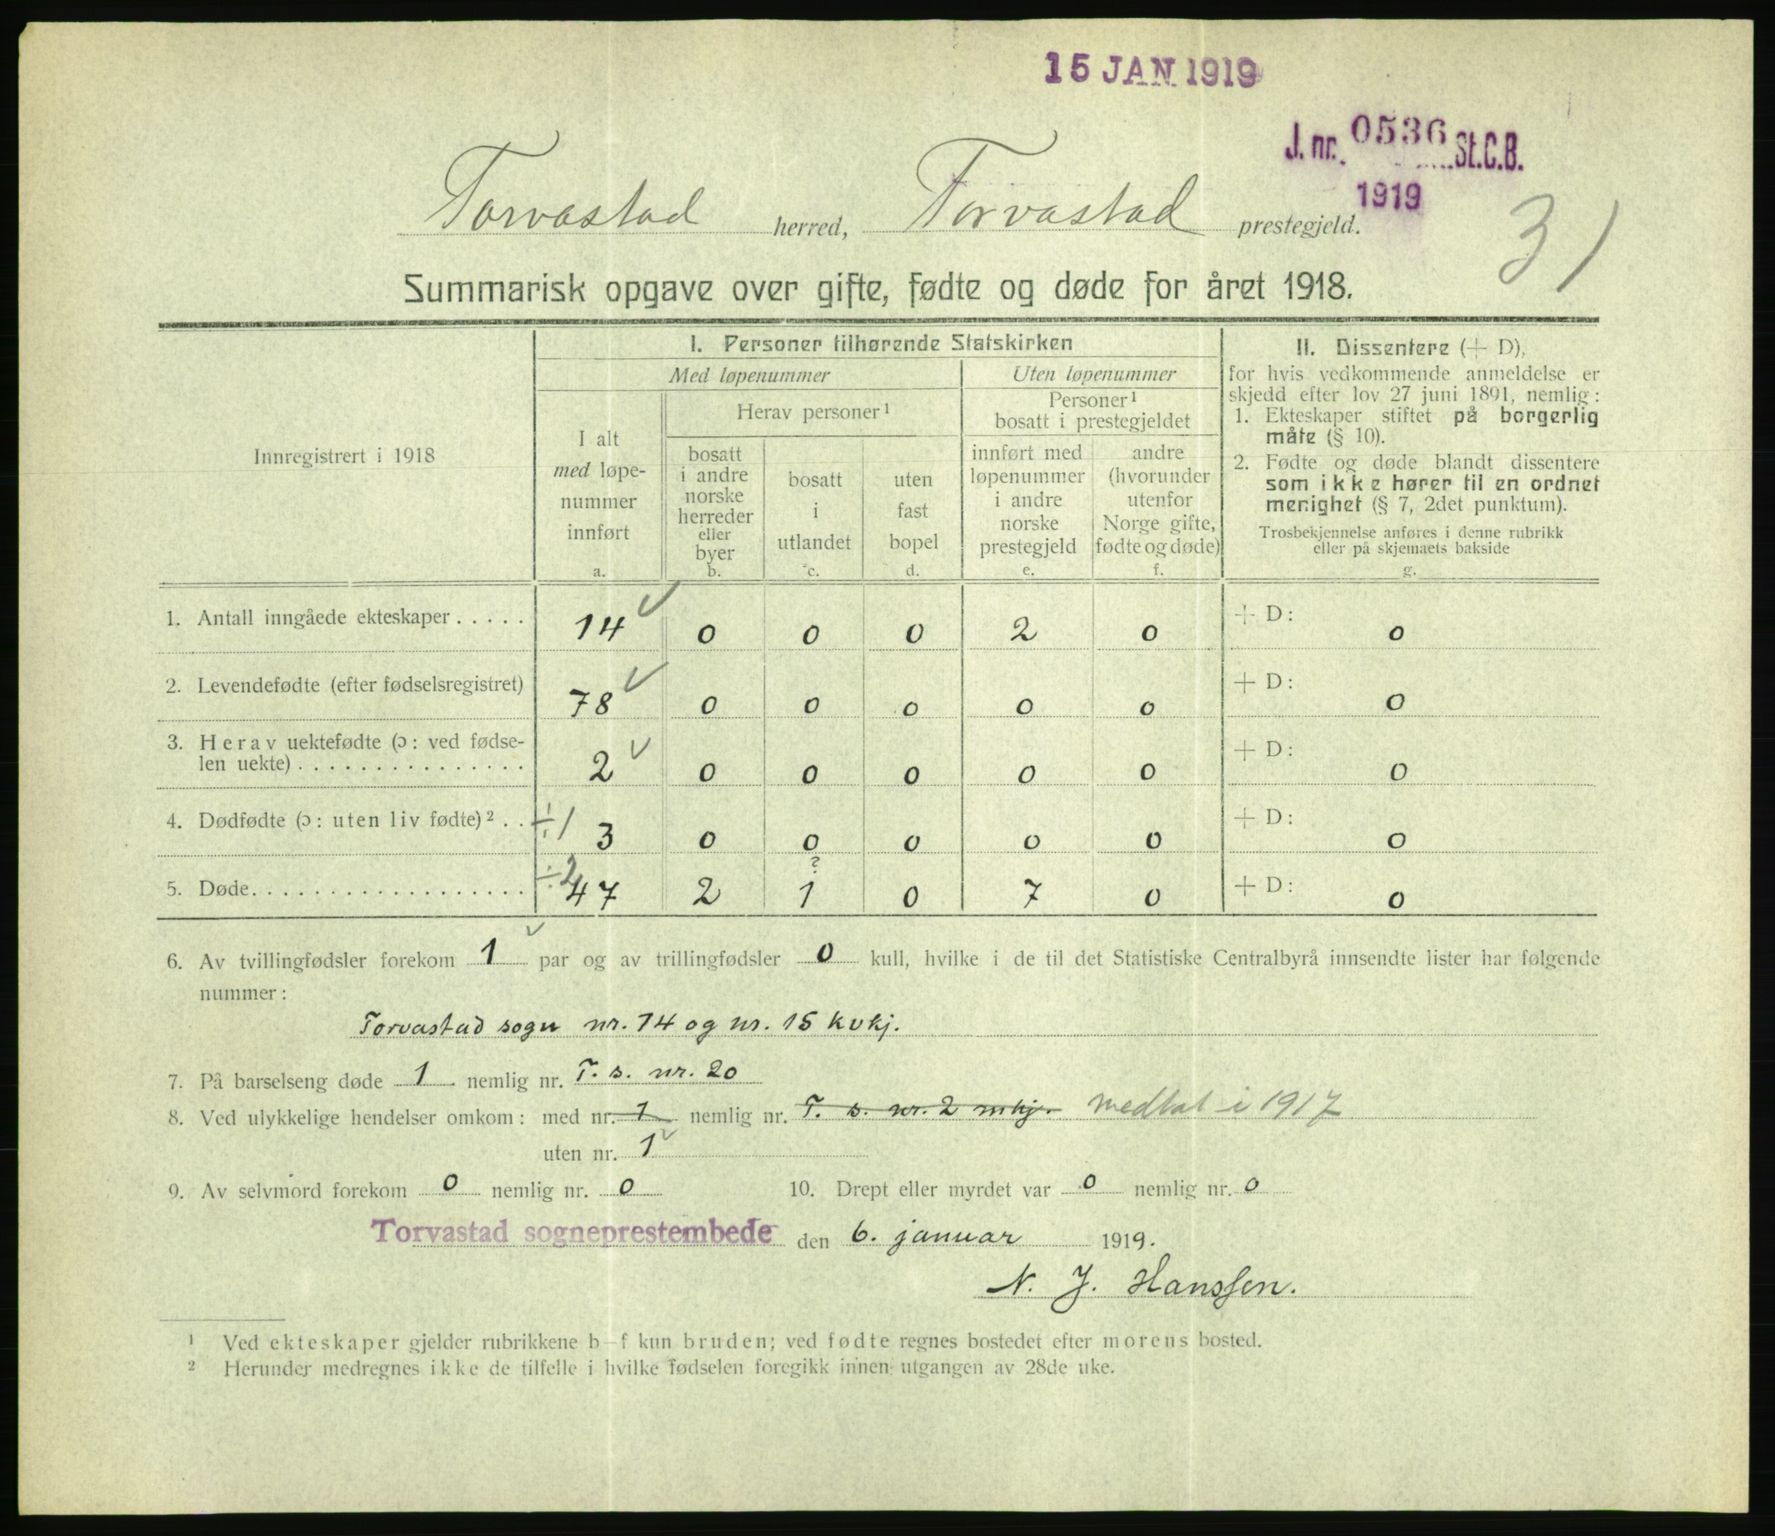 15 JAN 1919
J. nr. 0536 St.C.B.
1919
31
Torvastad herred, Torvastad prestegjeld.
Summarisk opgave over gifte, fødte og døde for året 1918.
Innregistrert i 1918
I. Personer tilhørende Statskirken
Med løpenummer
Uten løpenummer
I alt
med løpe-
nummer
innført
a.
Herav personer ¹
bosatt
i andre
norske
herreder
eller
byer
b.
bosatt
i
utlandet
c.
uten
fast
bopel
d.
Personer ¹
bosatt i prestegjeldet
innført med
løpenummer
i andre
norske
prestegjeld
e.
andre
(hvorunder
utenfor
Norge gifte,
fødte og døde)
f.
II. Dissentere (+ D),
for hvis vedkommende anmeldelse er
skjedd efter lov 27 juni 1891, nemlig:
1. Ekteskaper stiftet på borgerlig
måte (§ 10).
2. Fødte og døde blandt dissentere
som ikke hører til en ordnet
menighet (§ 7, 2det punktum).
Trosbekjennelse anføres i denne rubrikk
eller på skjemaets bakside
g.
1. Antall inngåede ekteskaper . . . . . 14 ✓ 0 0 0 2 0 + D: 0
2. Levendefødte (efter fødselsregistret) 78 ✓ 0 0 0 0 0 + D: 0
3. Herav uektefødte (ɔ: ved fødse-
len uekte) . . . . . . . . . . . . . . . 2 ✓ 0 0 0 0 0 + D: 0
4. Dødfødte (ɔ: uten liv fødte) ² . . ÷1 3 0 0 0 0 0 + D: 0
?
5. Døde. . . . . . . . . . . . . . . . . . ÷2 47 2 1 0 7 0 + D: 0
6. Av tvillingfødsler forekom 1 ✓ par og av trillingfødsler 0 kull, hvilke i de til det Statistiske Centralbyrå innsendte lister har følgende
nummer:
Torvastad sogn nr. 14 og nr. 15 kvkj.
7. På barselseng døde 1 nemlig nr. T. s. nr. 20
8. Ved ulykkelige hendelser omkom: med nr. 1 nemlig nr. T. s. nr. 2 mkj. medtat i 1917
uten nr. 1 ✓
9. Av selvmord forekom 0 nemlig nr. 0 10. Drept eller myrdet var 0 nemlig nr. 0
Torvastad sogneprestembede den 6. januar 1919.
N. J. Hanssen.
¹ Ved ekteskaper gjelder rubrikkene b–f kun bruden; ved fødte regnes bostedet efter morens bosted.
² Herunder medregnes ikke de tilfelle i hvilke fødselen foregikk innen utgangen av 28de uke.